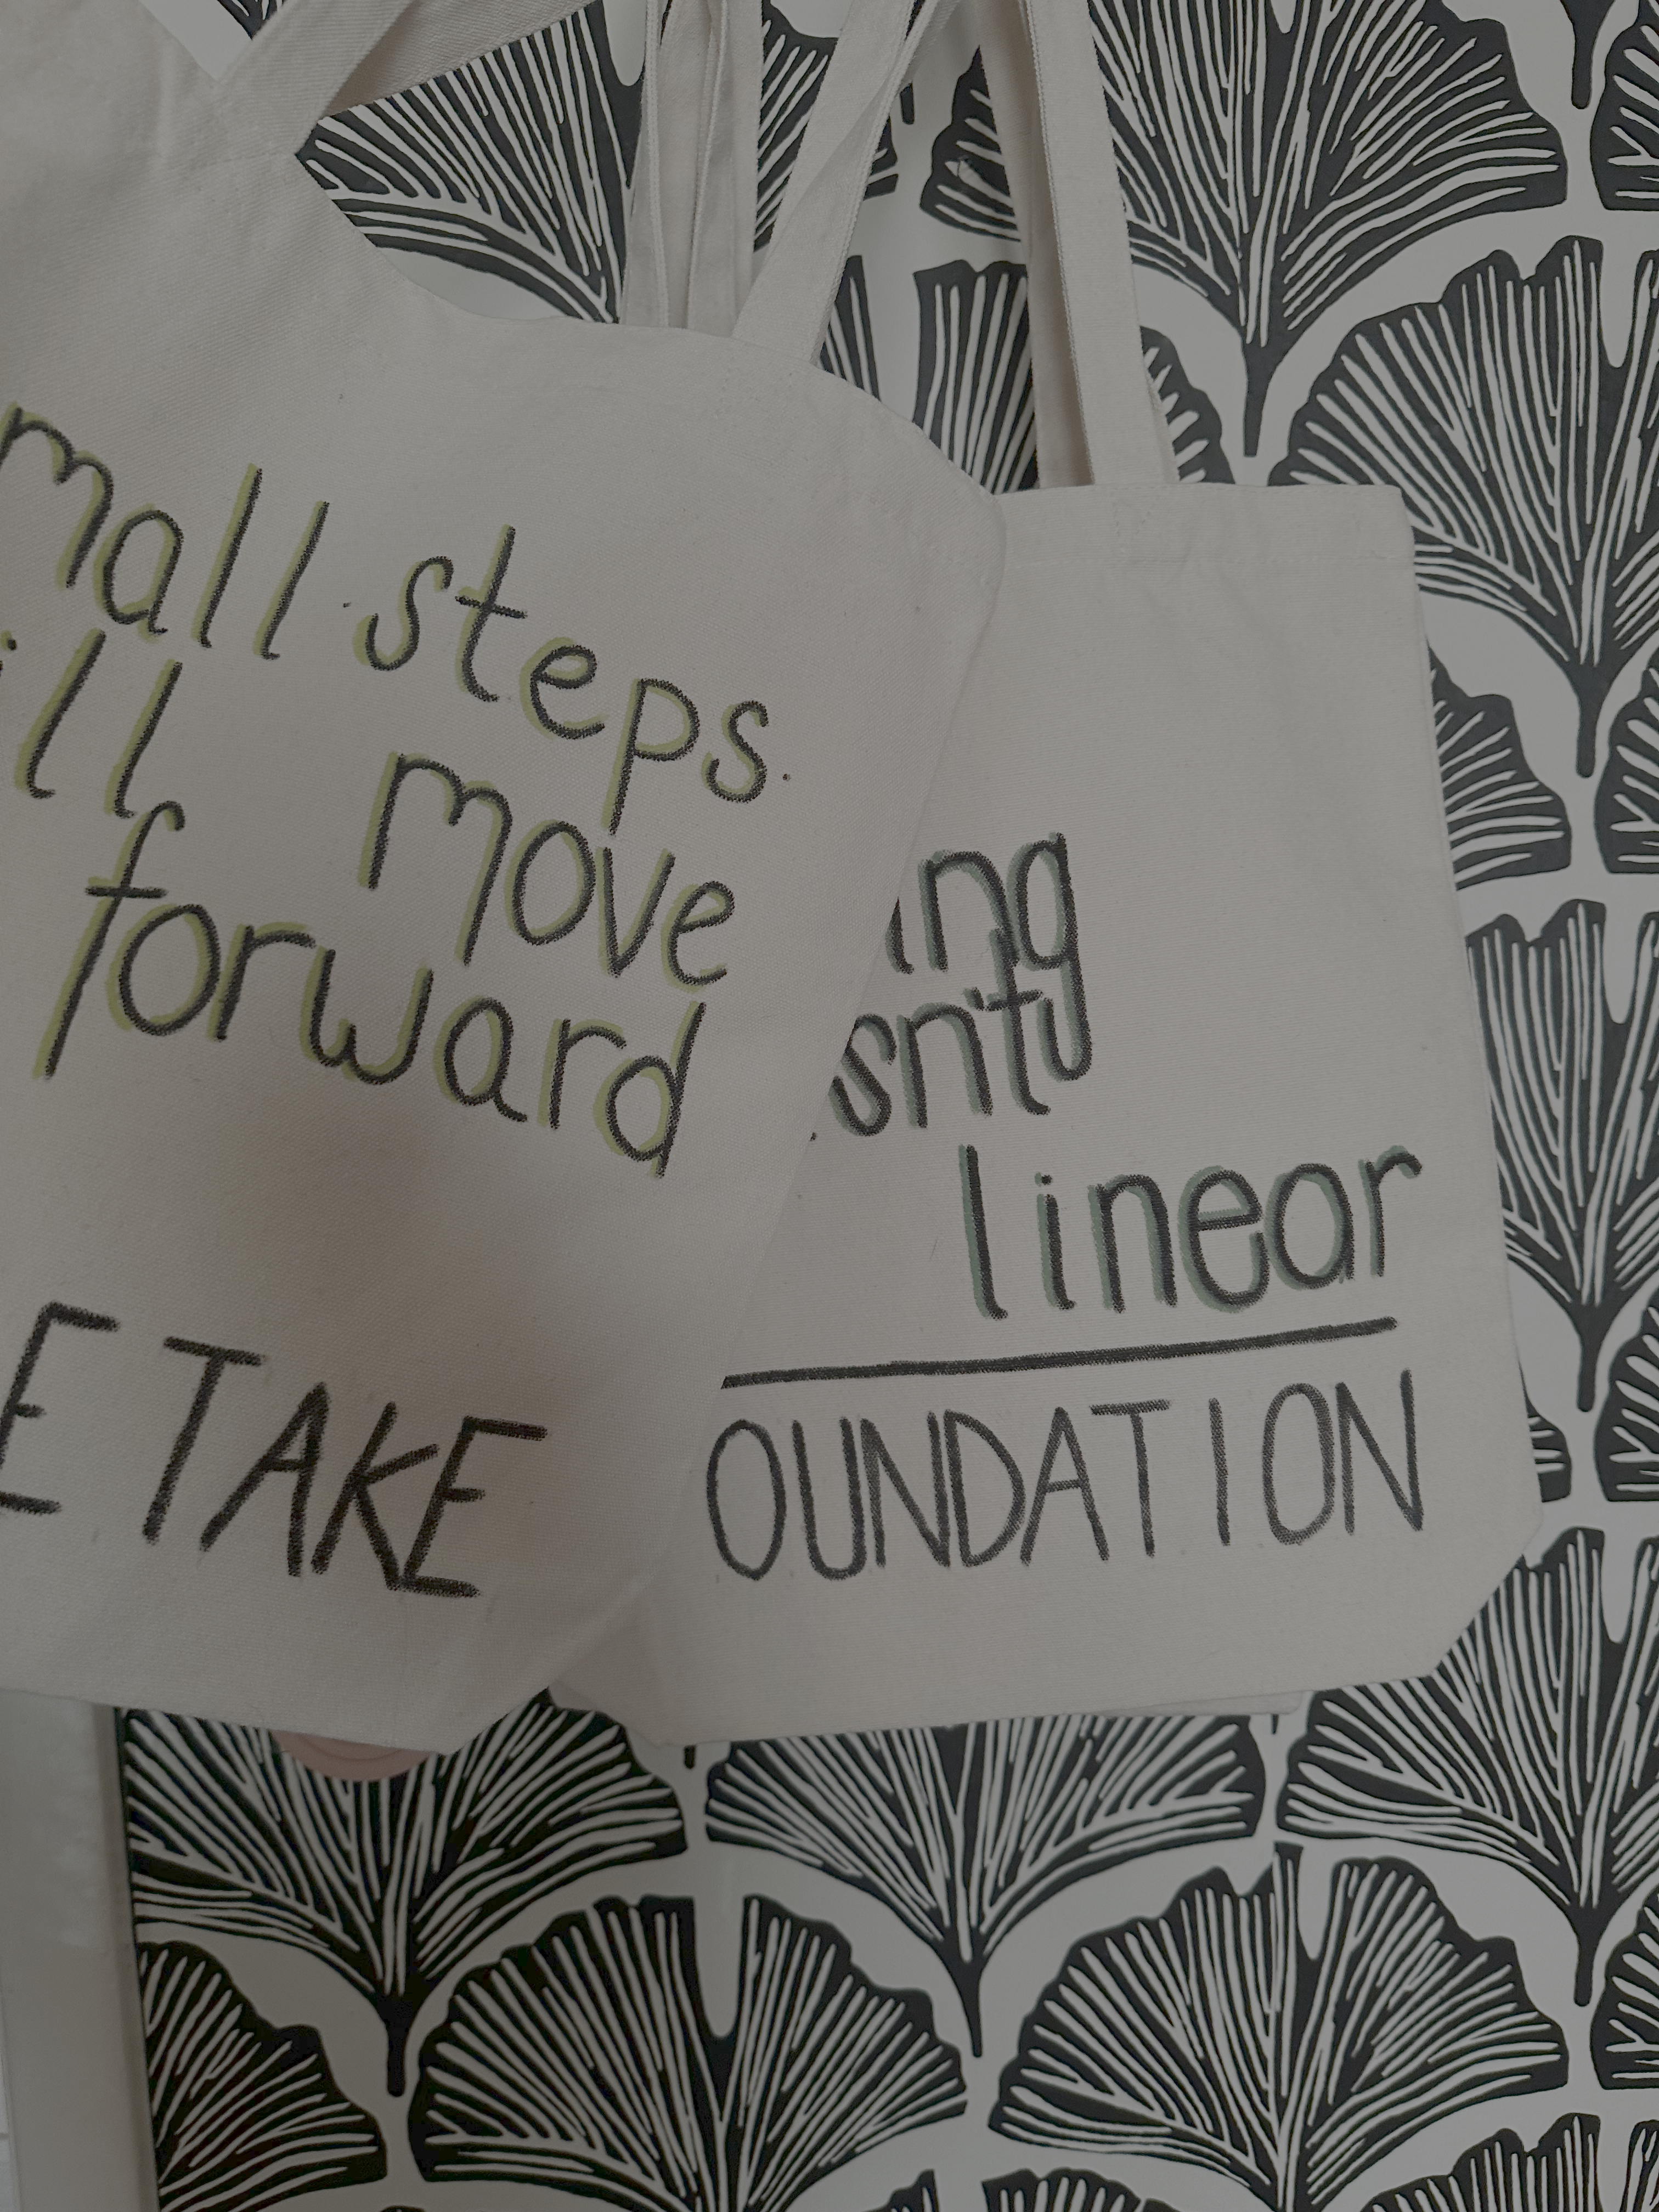 mall steps.
ill move
forward
E TAKE
ing
isn't
linear
OUNDATION